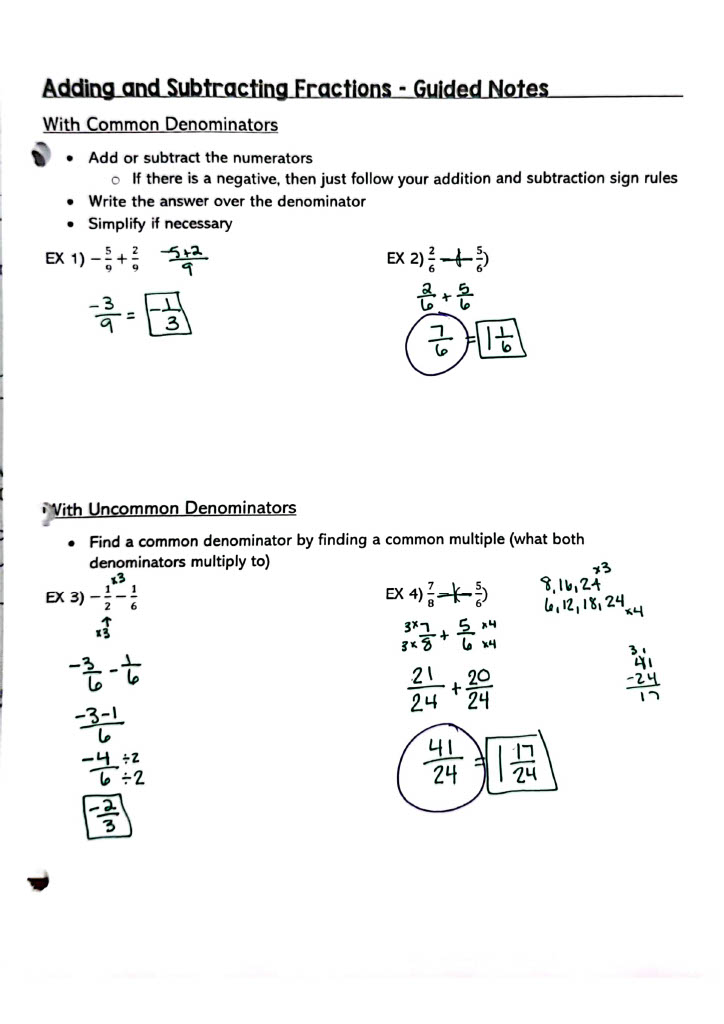 Adding and Subtracting Fractions - Guided Notes
With Common Denominators
• Add or subtract the numerators
○ If there is a negative, then just follow your addition and subtraction sign rules
• Write the answer over the denominator
• Simplify if necessary
EX 1) -5/9 + 2/9 -5+2/9
-3/9 = -1/3
EX 2) 2/6 - (-5/6)
2/6 + 5/6
7/6 = 1 1/6
With Uncommon Denominators
• Find a common denominator by finding a common multiple (what both
denominators multiply to)
x3
EX 3) -1/2 - 1/6
↑
x3
-3/6 - 1/6
-3-1/6
-4/6 ÷2 ÷2
-2/3
EX 4) 7/8 - (-5/6)
x3
8, 16, 24
6, 12, 18, 24 x4
3x 3x 7/8 + 5/6 x4 x4
21/24 + 20/24
41/24 = 1 17/24
3 1
41
-24
17